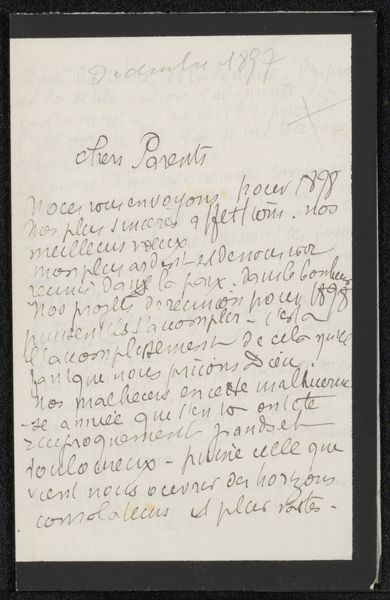 Decembre 1897
chers Parents
Nous vous envoyons pour 1898
nos plus sincères affections. nos
meilleurs voeux
mon plus ardent est de nous voir
reunis dans la paix. dans le bonheur
Nos projets de reunion pour 1898
puissent ils s'accomplir - c'est a
l'accomplissement de cela que
nous prions Dieu.
Nos malheurs en cette malheureu
-se année qui s'en va ont été
reciproquement grands et
douloureux - puisse celle que
vient nous ouvrir des horizons
consolateurs et plus vastes -